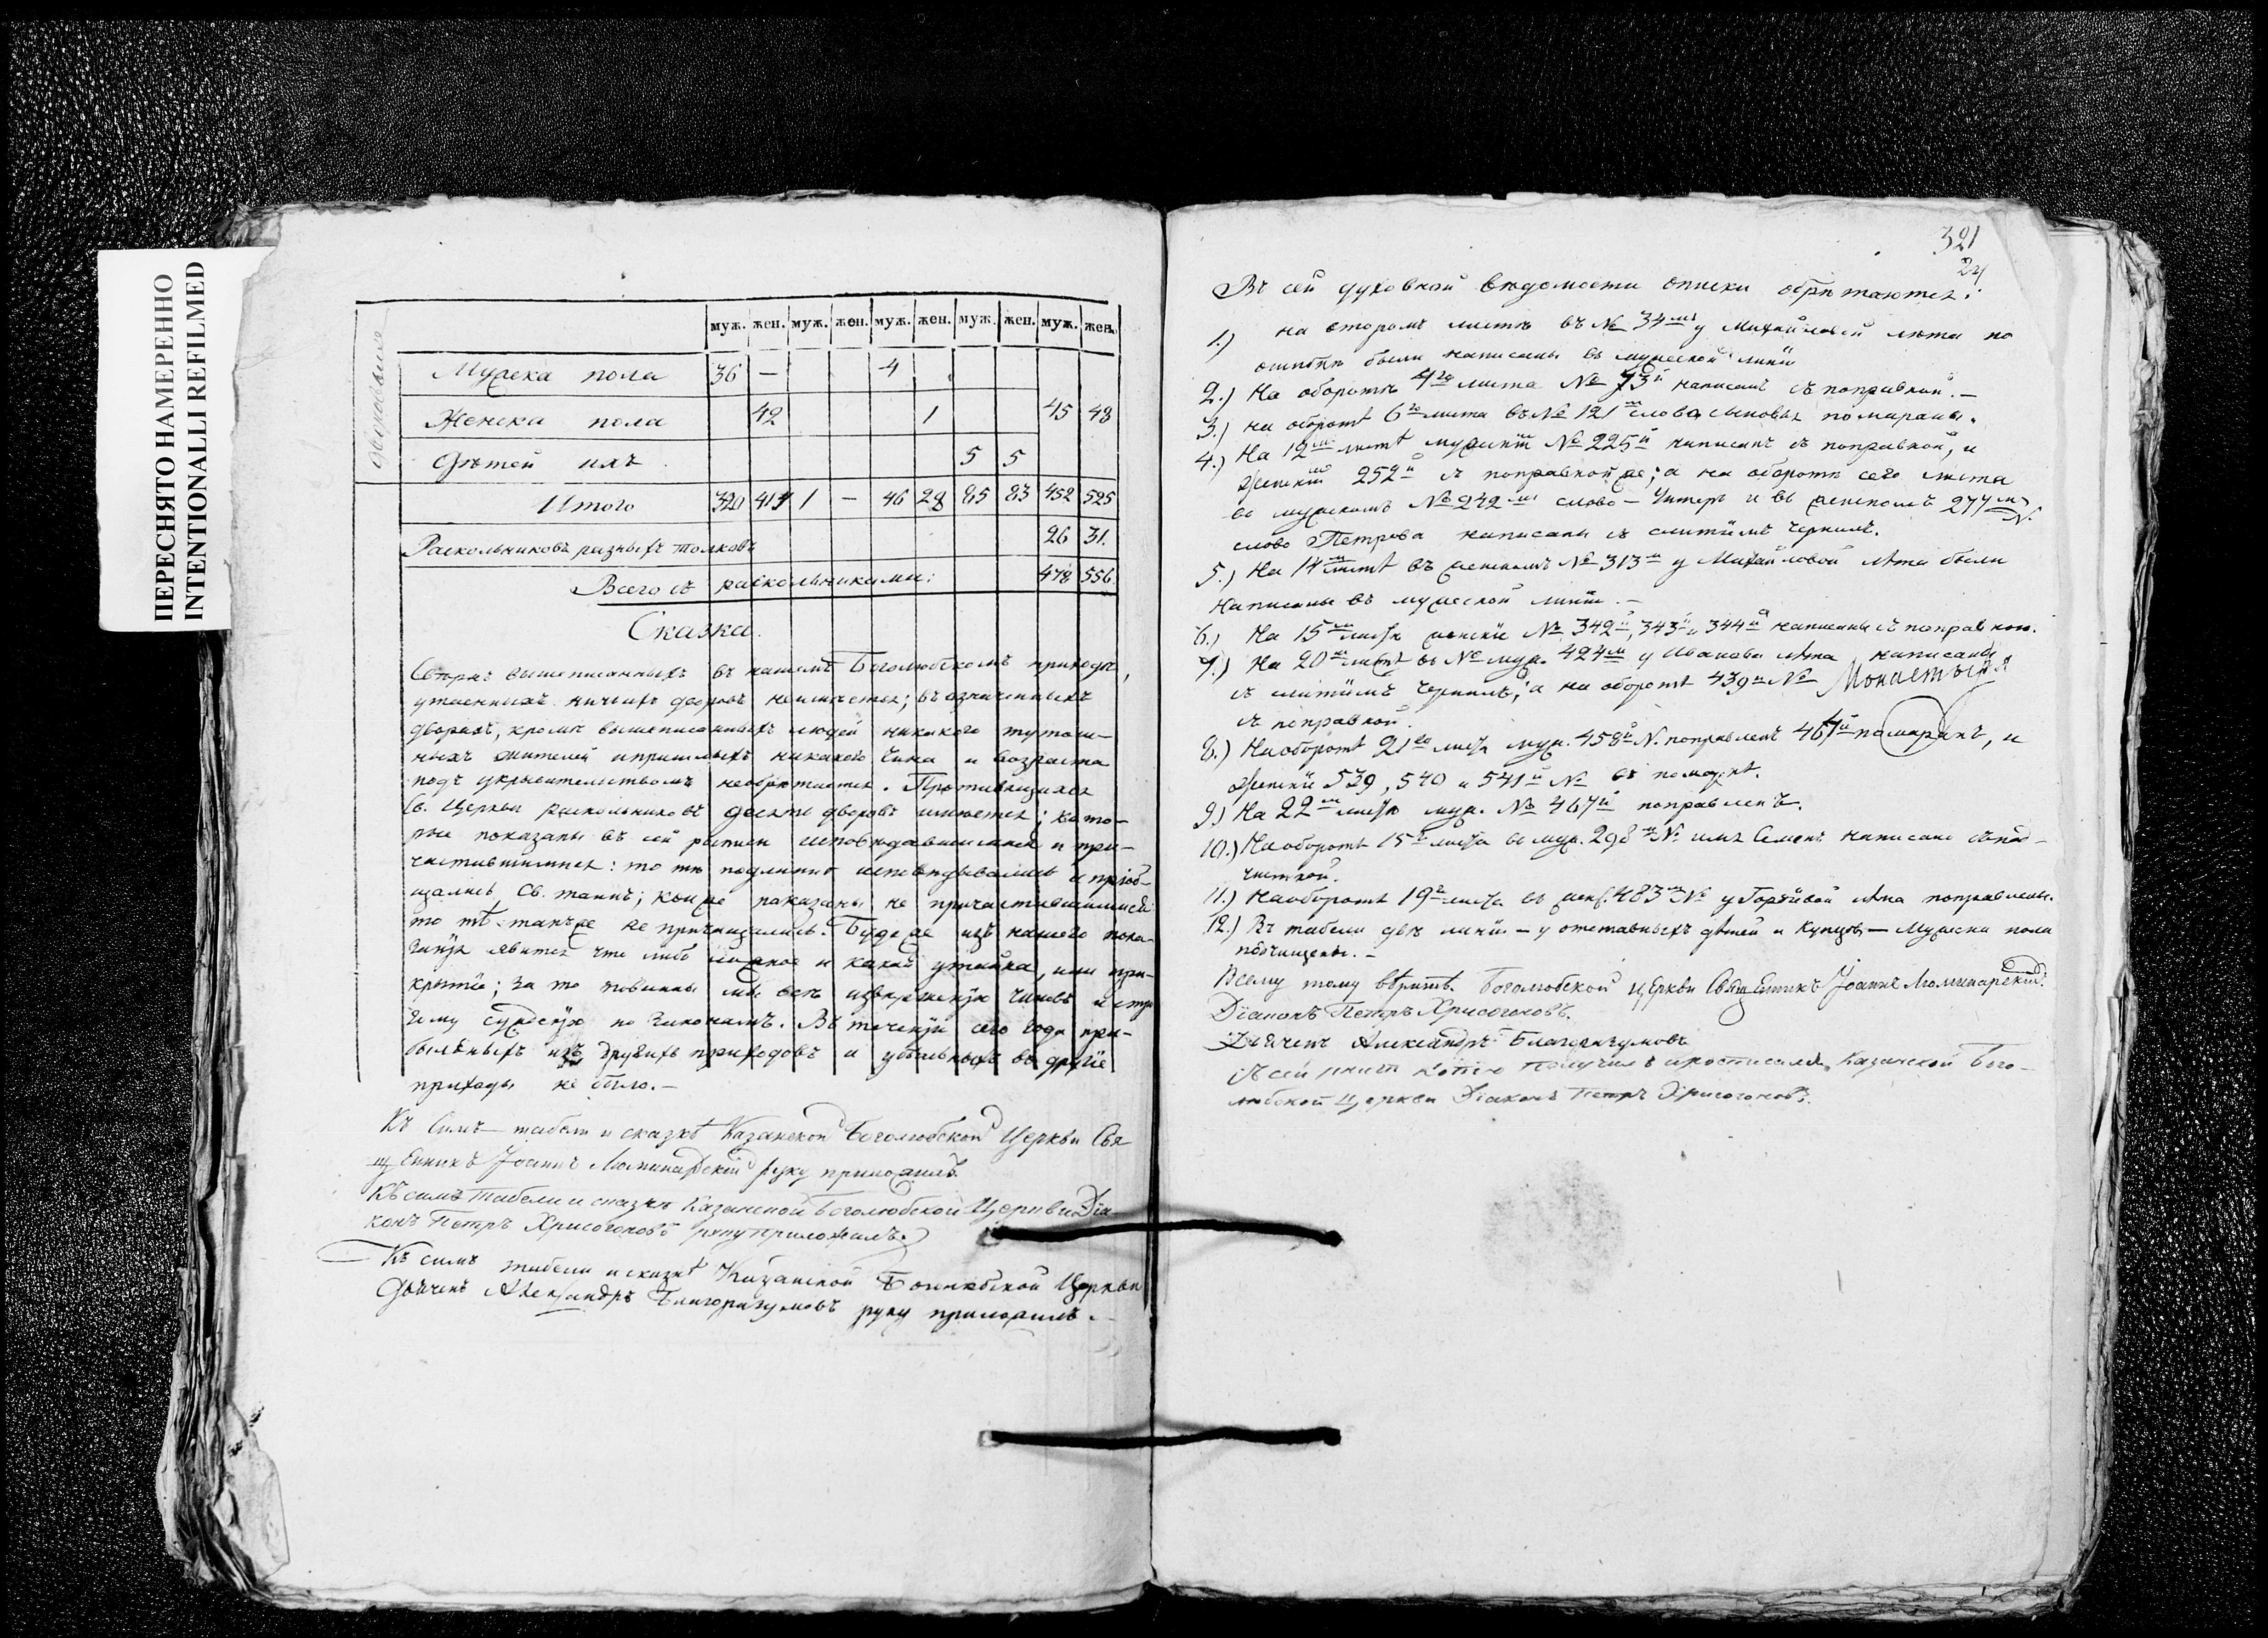 ПЕРЕСНЯТО НАМЕРЕННО
INTENTIONALLI REFILMED
муж. жен. муж. жен. муж. жен. муж. жен. муж. жен.
Мужеска пола 36 — 4
Женска пола 42 1 45 48
Дѣтей ихъ 5 5
Итого 320 414 1 — 46 28 85 83 452 525
Раскольниковъ разныхъ толковъ 26 31.
Всего съ раскольниками: 478 556
Сказка.
Сверхъ вышеписанныхъ въ нашемъ Боголюбскомъ приходѣ,
утаенныхъ ничьихъ дворовъ неимѣется; въ означенныхъ
дворахъ, кромѣ вышеписанныхъ людей никакого тутош-
ныхъ жителей ипришлыхъ никакого чина и возраста
подъ укрывательствомъ необрѣтается. Противящихся
Св. Церкви раскольниковъ десять дворовъ имѣется; кото-
рые показаны въ сей росписи исповѣдавшимися и при-
частившимися: то тѣ подлинно исповѣдывались и пріоб-
щались Св. таинъ; кои же показаны не причастившимися
то тѣ также не причащались. Буде же изъ нашего пока-
занія явится что либо ложное и какая утайка, или при-
крытіе; за то повинны мы всѣ изверженію чиновъ и стро
гому сужденію по законамъ. Въ теченіи сего года при-
былыхъ изъ другихъ приходовъ и убылыхъ въ другіе
приходы не было.—
Къ симъ табели и сказкѣ Казанской Боголюбской Церкви Свя
щенникъ Іоаннъ руку приложилъ.
Къ симъ табели и сказкѣ Казанской Боголюбской Церкви Діа
конъ Петръ Хрисогоновъ руку приложилъ.
Къ симъ табели и сказкѣ Казанской Боголюбской Церкви
Дьячекъ Александръ Благоразумовъ руку приложилъ.
321
24
Въ сей духовной вѣдомости описки обрѣтаются:
1.) на второмъ листѣ въ № 34мъ у Михайловой лѣта по
ошибкѣ были написаны въ мужеской линіи
2.) На оборотѣ 4го листа № 73й написанъ съ поправкой.—
3.) на оборотѣ 6го листа въ № 121м слова сыновья помараны.
4.) На 12м листѣ мужскій № 225й написанъ съ поправкой, и
женскій 252й съ поправкой же; а на оборотѣ сего листа
въ мужскомъ № 242мъ слово — Унтеръ и въ женскомъ 277мъ №.
слово Петрова написаны съ слитіемъ чернилъ.
5.) На 14м листѣ въ женскомъ № 313м у Михайловой лѣта были
написаны въ мужеской линіи.—
6.) На 15м листѣ женскіе № 342й, 343й и 344й написаны съ поправкою.
7.) На 20м листѣ въ № муж. 424м у Иванова лѣта написаны
съ слитіемъ чернилъ; а на оборотѣ 439й № Монастыря
съ поправкой.
8.) На оборотѣ 21го листа муж. 458й №. поправленъ 467й помаранъ, и
женскіе 539, 540 и 541й №
9.) На 22м листѣ муж. № 467й поправленъ.
10.) На оборотѣ 15го листа въ муж. 298м №. имя Семенъ написано съ под-
чисткой.
11.) На оборотѣ 19го листа въ жен. 483м № у лѣта поправлены.
12.) Въ табели двѣ линіи — у отставныхъ дѣтей и Купцовъ — Мужеска пола
подчищены.—
Всему тому вѣрить. Боголюбской Церкви Священникъ Іоаннъ
Діаконъ Петръ Хрисогоновъ.
Дьячекъ Александръ Благоразумовъ
Съ сей копію получилъ и росписался Казанской Бого-
любской Церкви Діаконъ Петръ Хрисогоновъ.